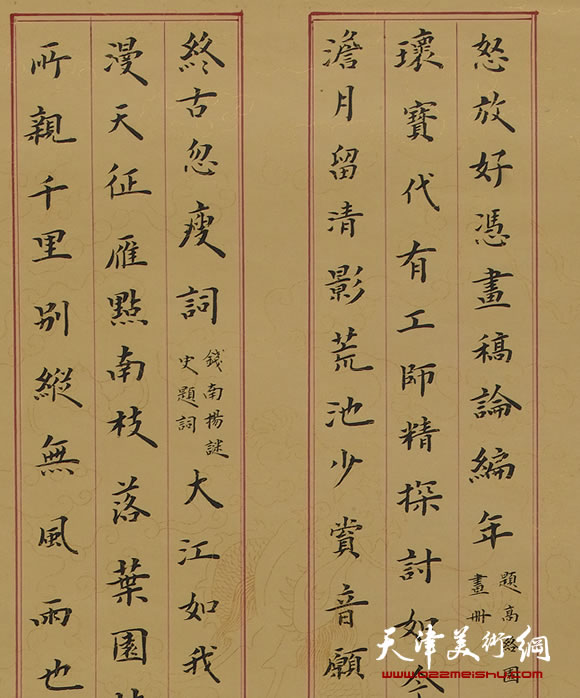 怒放好憑畫稿論編年
題高
畫冊
瓌寶代有工師精探討如今
澹月留清影荒池少賞音願
終古忽瘦詞
錢南揚謎
史題詞
大江如我
漫天征雁點南枝落葉園
所親千里別縱無風雨也
天津美術網
www.022meishu.com